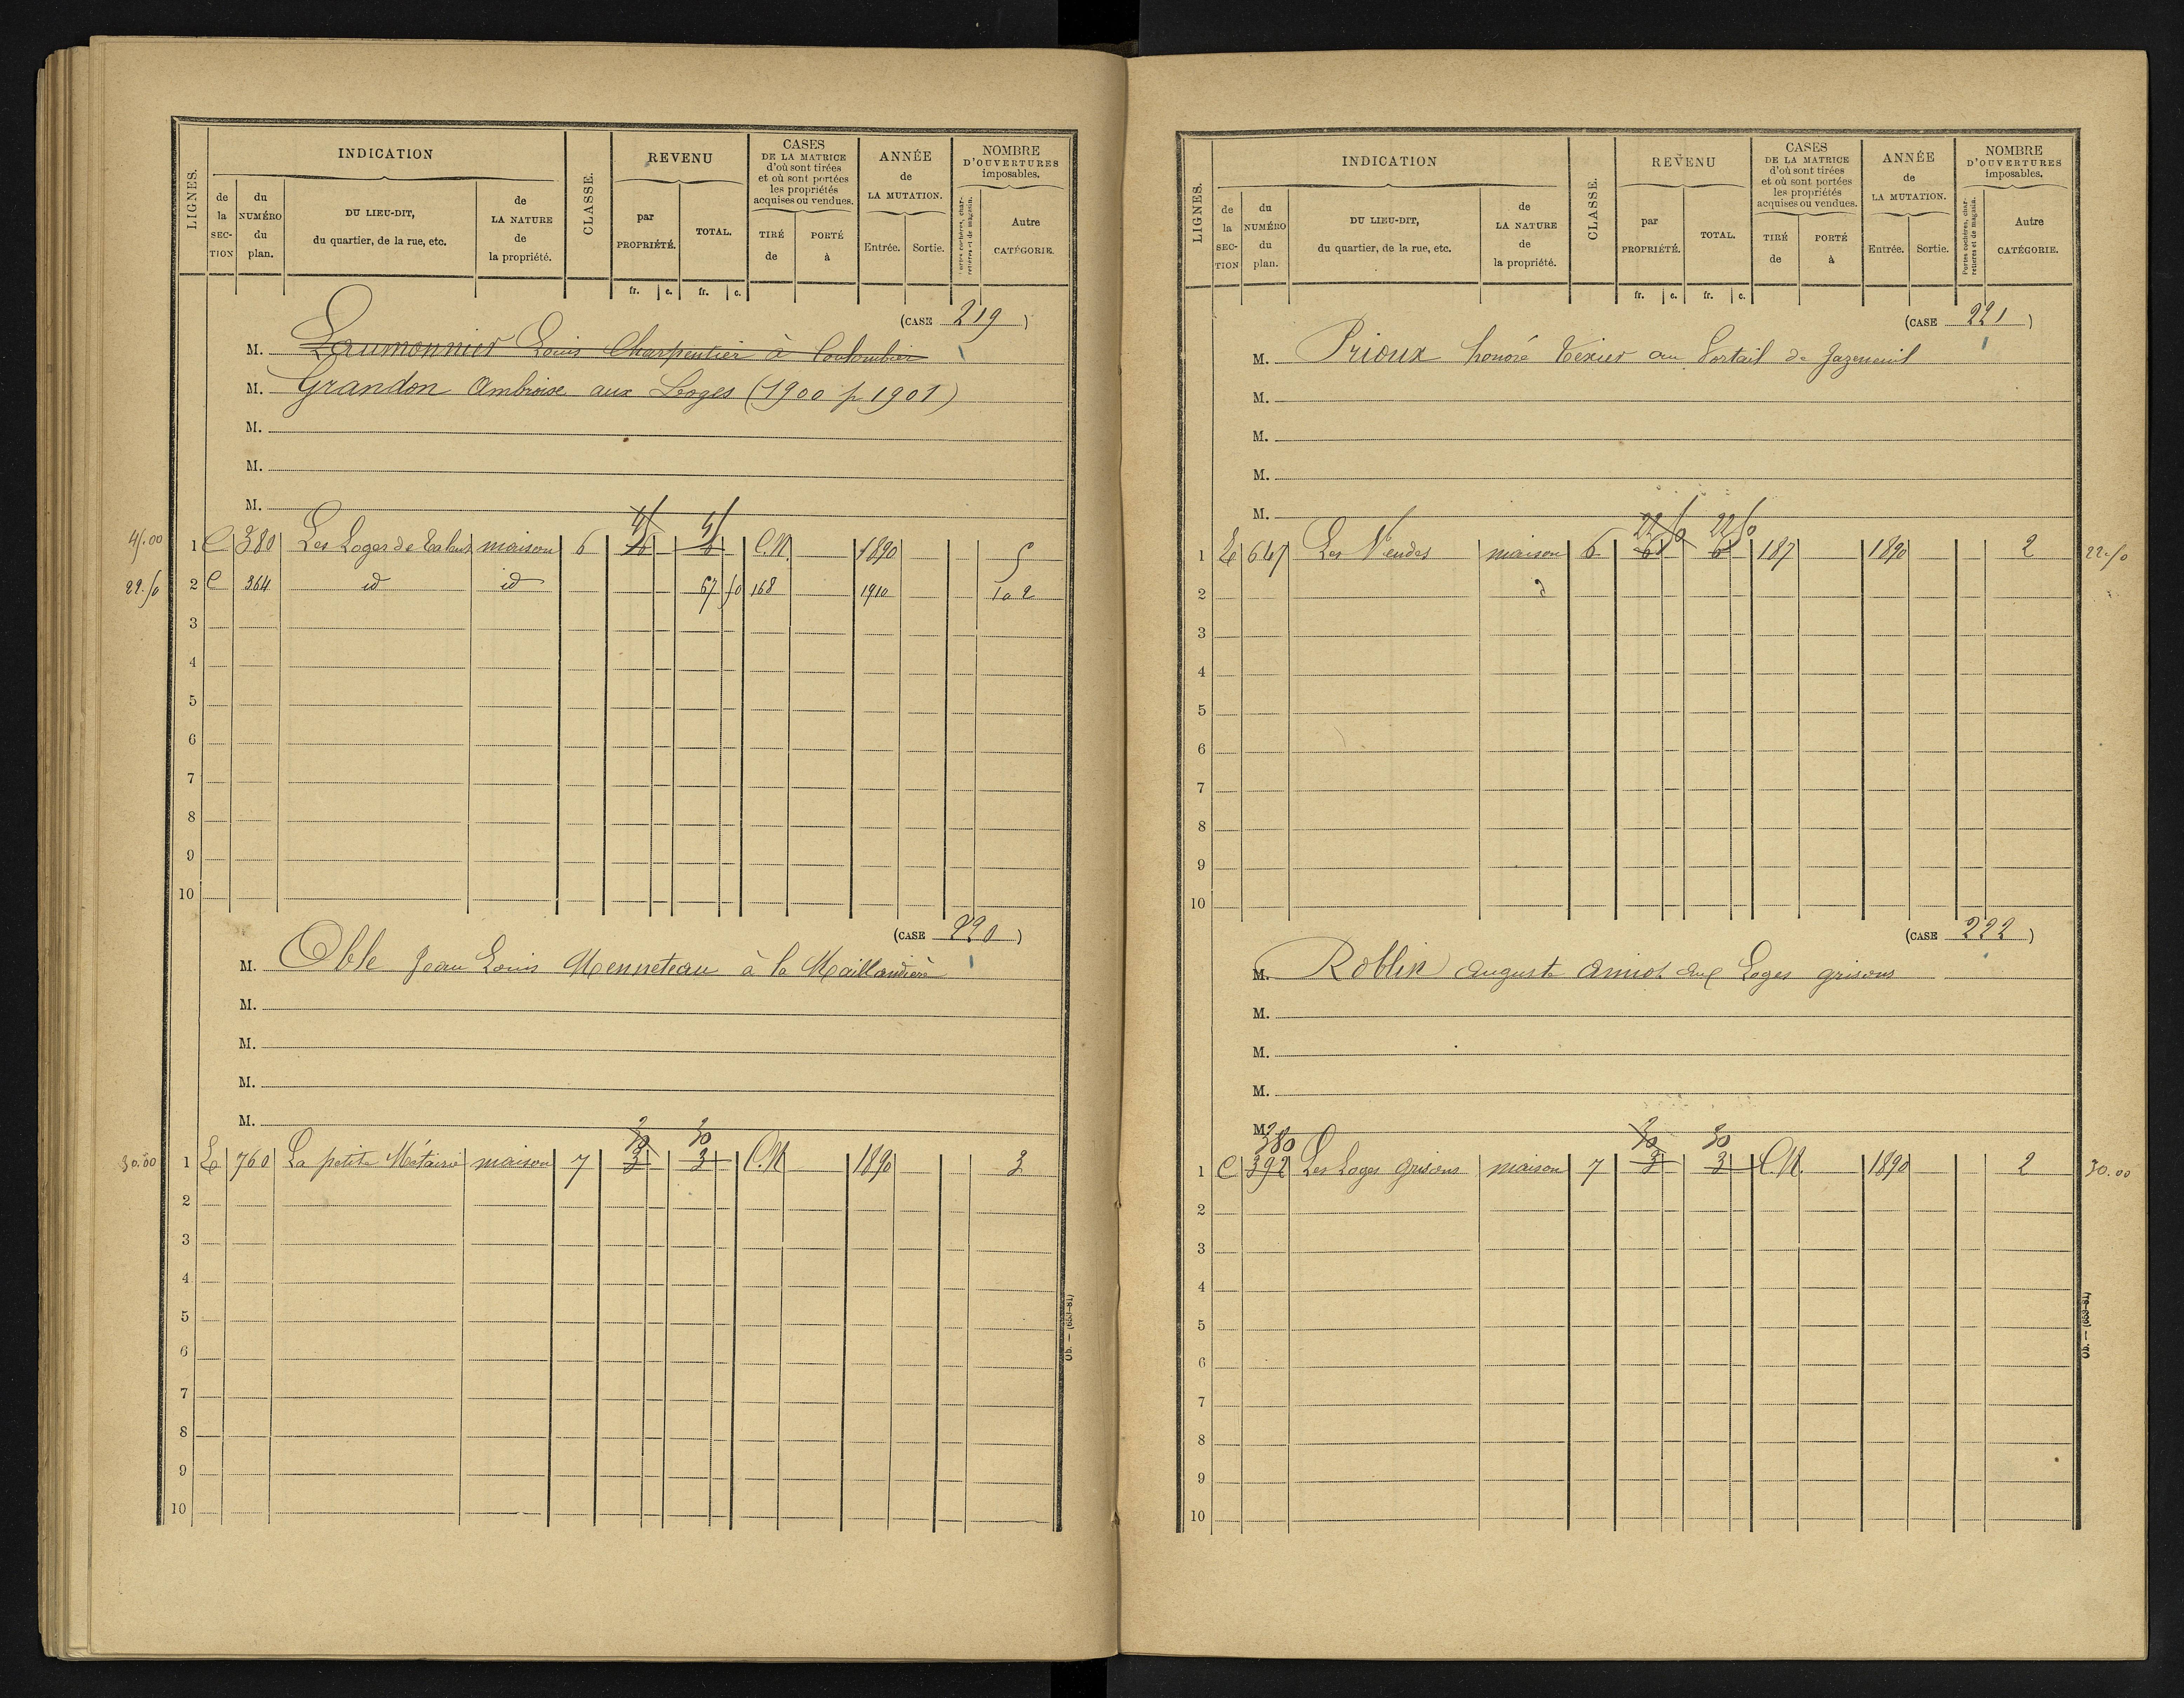 LIGNES.
INDICATION
de la SECTION
du NUMÉRO du plan.
DU LIEU-DIT, du quartier, de la rue, etc.
de LA NATURE de la propriété.
CLASSE.
REVENU
par PROPRIÉTÉ.
TOTAL.
CASES DE LA MATRICE d'où sont tirées et où sont portées les propriétés acquises ou vendues.
TIRÉ de
PORTÉ à
ANNÉE de LA MUTATION.
Entrée.
Sortie.
NOMBRE D'OUVERTURES imposables.
Portes cochères, charretières et de magasin.
Autre CATÉGORIE.
fr. c. fr. c.
(CASE 219)
M. Laumonnier Louis Charpentier à Coulombier
M. Grandon Ambroise aux Loges (1900 p 1901)
M.
M.
M.
45.00 1 C 380 Les Loges de maison 6 45 6 45 6 C.N. 1890 5
22.50 2 C 364 id id 67 50 168 1910 1 a 2
3
4
5
6
7
8
9
10
(CASE 220)
M. Oble Jean Louis Menneteau à la Maillandière
M.
M.
M.
M.
30.00 1 E 760 La petite Métairie maison 7 30 3 30 3 C.N. 1890 3
2
3
4
5
6
7
8
9
10
Ob. — (653-81)
LIGNES.
INDICATION
de la SECTION
du NUMÉRO du plan.
DU LIEU-DIT, du quartier, de la rue, etc.
de LA NATURE de la propriété.
CLASSE.
REVENU
par PROPRIÉTÉ.
TOTAL.
CASES DE LA MATRICE d'où sont tirées et où sont portées les propriétés acquises ou vendues.
TIRÉ de
PORTÉ à
ANNÉE de LA MUTATION.
Entrée.
Sortie.
NOMBRE D'OUVERTURES imposables.
Portes cochères, charretières et de magasin.
Autre CATÉGORIE.
fr. c. fr. c.
(CASE 221)
M. Prioux honoré Texier au Portail de Jazeneuil
M.
M.
M.
M.
1 E 647 Les Vendes maison 6 22 50 6 22 50 6 187 1890 2 22.50
2
3
4
5
6
7
8
9
10
(CASE 222)
M. Roblin auguste amiot aux Loges grisons
M.
M.
M.
M.
380
1 C 392 Les Loges grisons maison 7 30 3 30 3 C.N. 1890 2 30.00
2
3
4
5
6
7
8
9
10
Ob. — (653-81)